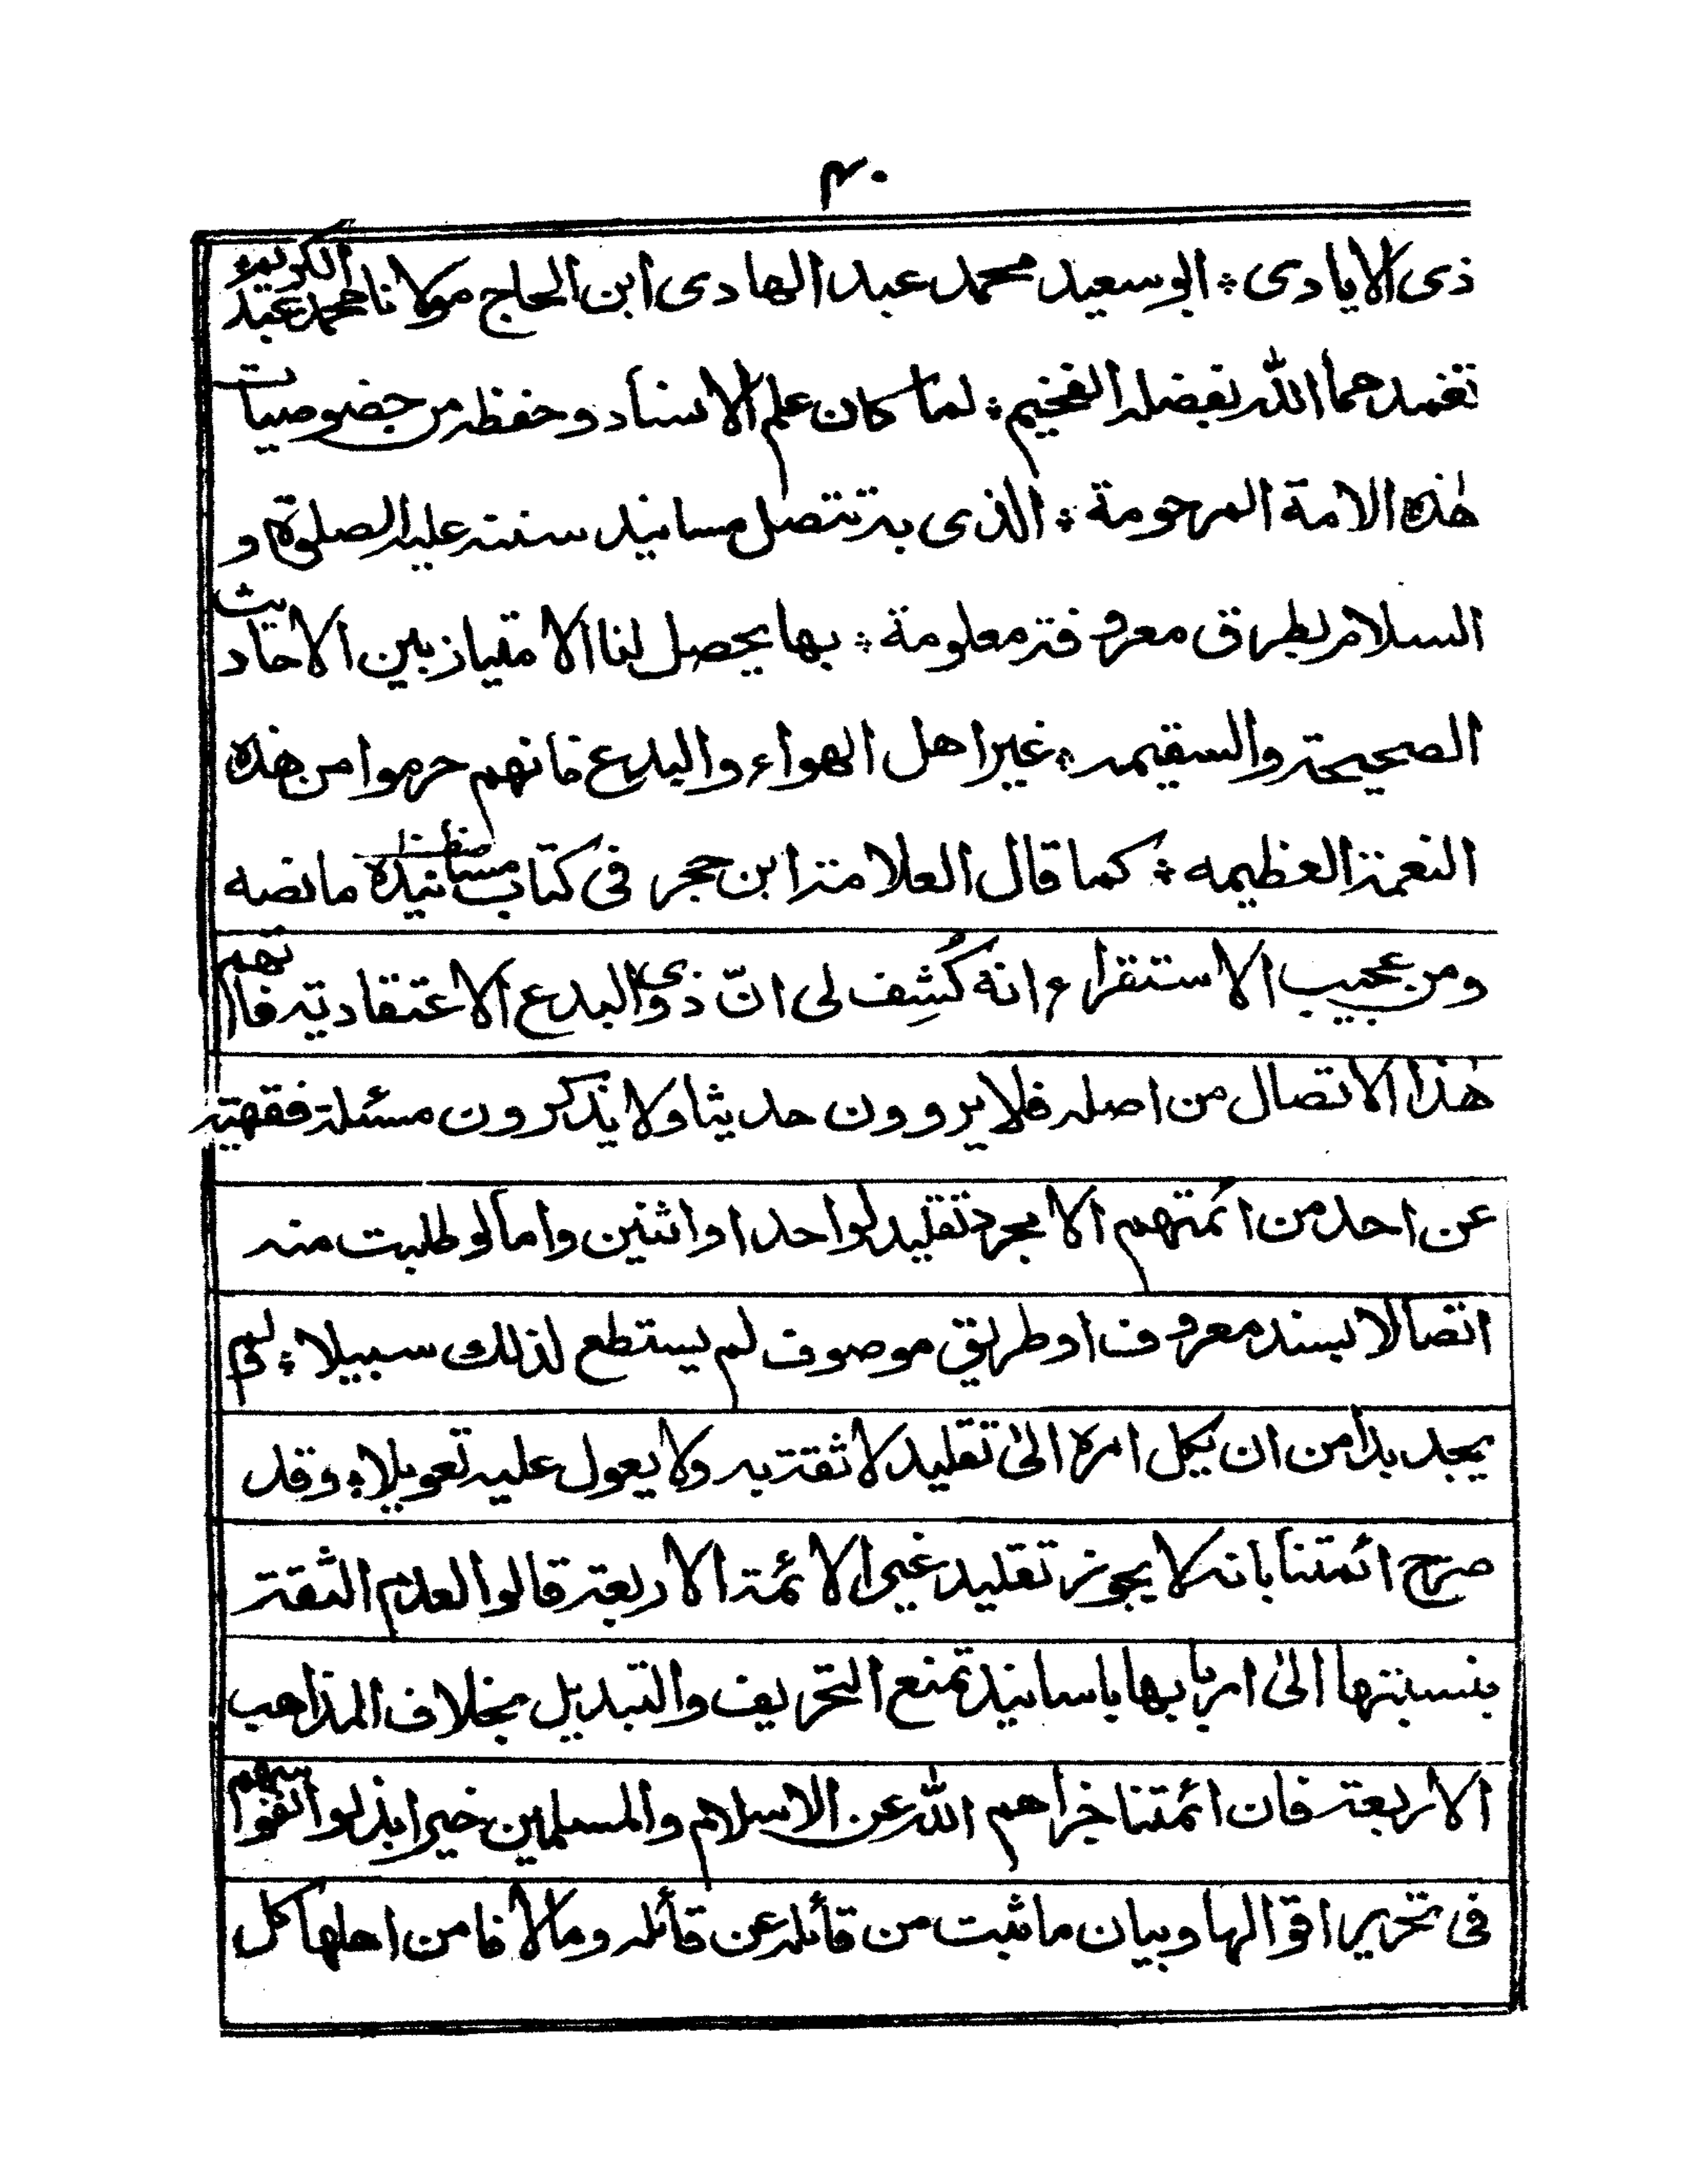 ٤٠
ذى الايادى ؞ ابو سعيد محمد عبد الهادى ابن الحاج مولانا محمد عبد الكريم ؞
تغمدهما الله بفضله الفخيم ؞ لما كان علم الاسناد وحفظه من خصوصيات
هٰذه الامة المرحومة ؞ الذى به تتصل مسانيد سنته عليه الصلوة و
السلام بطرق معروفة معلومة ؞ بها يحصل لنا الامتياز بين الاحاديث
الصحيحة والسقيمه ؞ غير اهل الهواء والبدع فانهم حرموا من هذه
النعمة العظيمه ؞ كما قال العلامة ابن حجر فى كتاب مسانيده مانصه
ومن عجيب الاستقراء انه كُشِف لى انّ ذوى البدع الاعتقادية فاتهم
هٰذا الاتصال من اصله فلا يروون حديثا ولا يذكرون مسئلة فقهية
عن احد من ائمتهم الا مجرد تقليد لواحد او اثنين واما لو طلبت منه
اتصالا بسند معروف او طريق موصوف لم يستطع لذلك سبيلا ؞ ولم
يجد بدا من ان يكل امره الىٰ تقليد لا ثقة به ولا يعول عليه تعويلا ؞ وقد
صرح ائمتنا بانه لا يجوز تقليد غير الائمة الاربعة قالوا لعدم الثقة
بنسبتها الىٰ اربابها باسانيد تمنع التحريف والتبديل بخلاف المذاهب
الاربعة فان ائمتنا جزاهم الله عن الاسلام والمسلمين خيرا بذلوا انفسهم
فى تحرير اقوالها وبيان ما ثبت من قائله عن قائله وما لا فامن اهلها كل